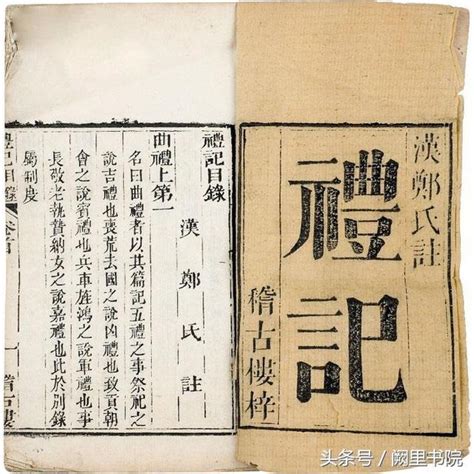 漢鄭氏註
禮記
稽古樓梓
禮記目錄
漢鄭氏註
曲禮上第一
名曰曲禮者以其篇記五禮之事祭祀之
說吉禮也喪荒去國之說凶禮也致貢朝
會之說賓禮也兵車旌鴻之說軍禮也事
長敬老執贄納女之說嘉禮也此於別錄
屬制度
禮記目錄 卷首 一 稽古樓
头条号 / 阙里书院